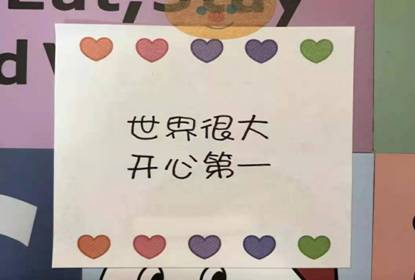 Eat, Stay
d
世界很大
开心第一